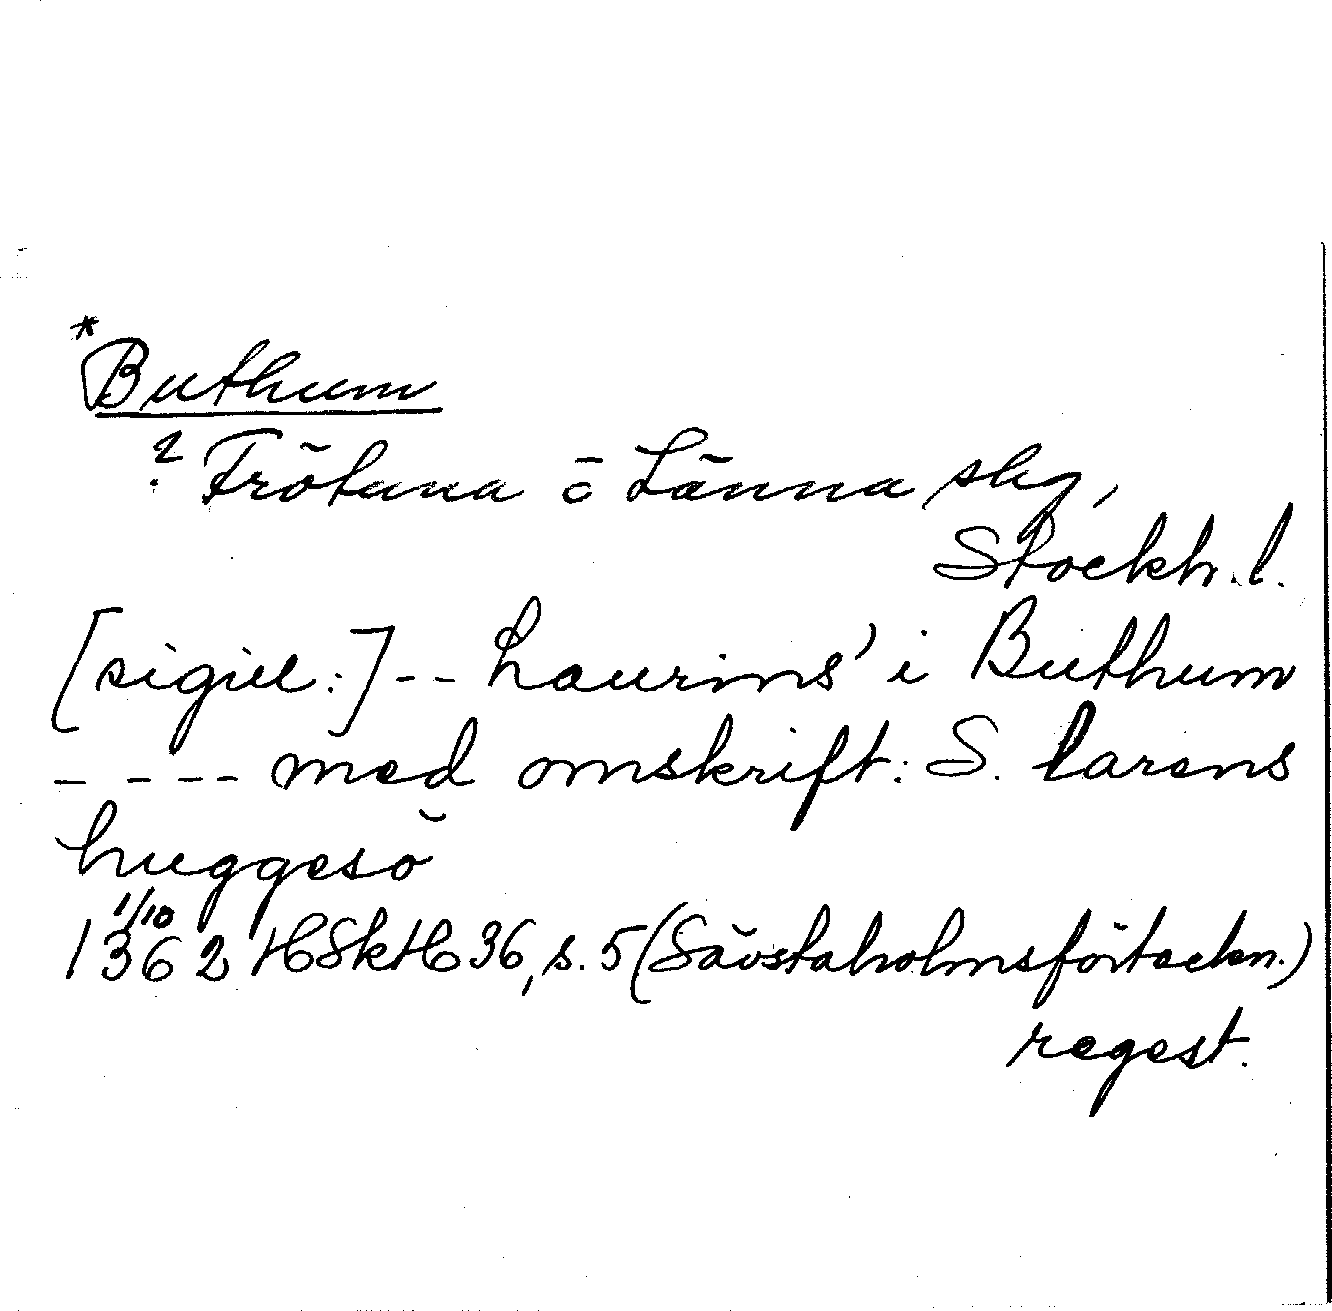 *Buthum
? Frötuna ö Länna slg,
Stockh. l.
[sigill:] -- Laurins' i Buthum
- --- med omskrift: S. larens
huggesö
1/10
1362 HSkH 36, s. 5 (Sävstaholmsförteckn.)
regest.